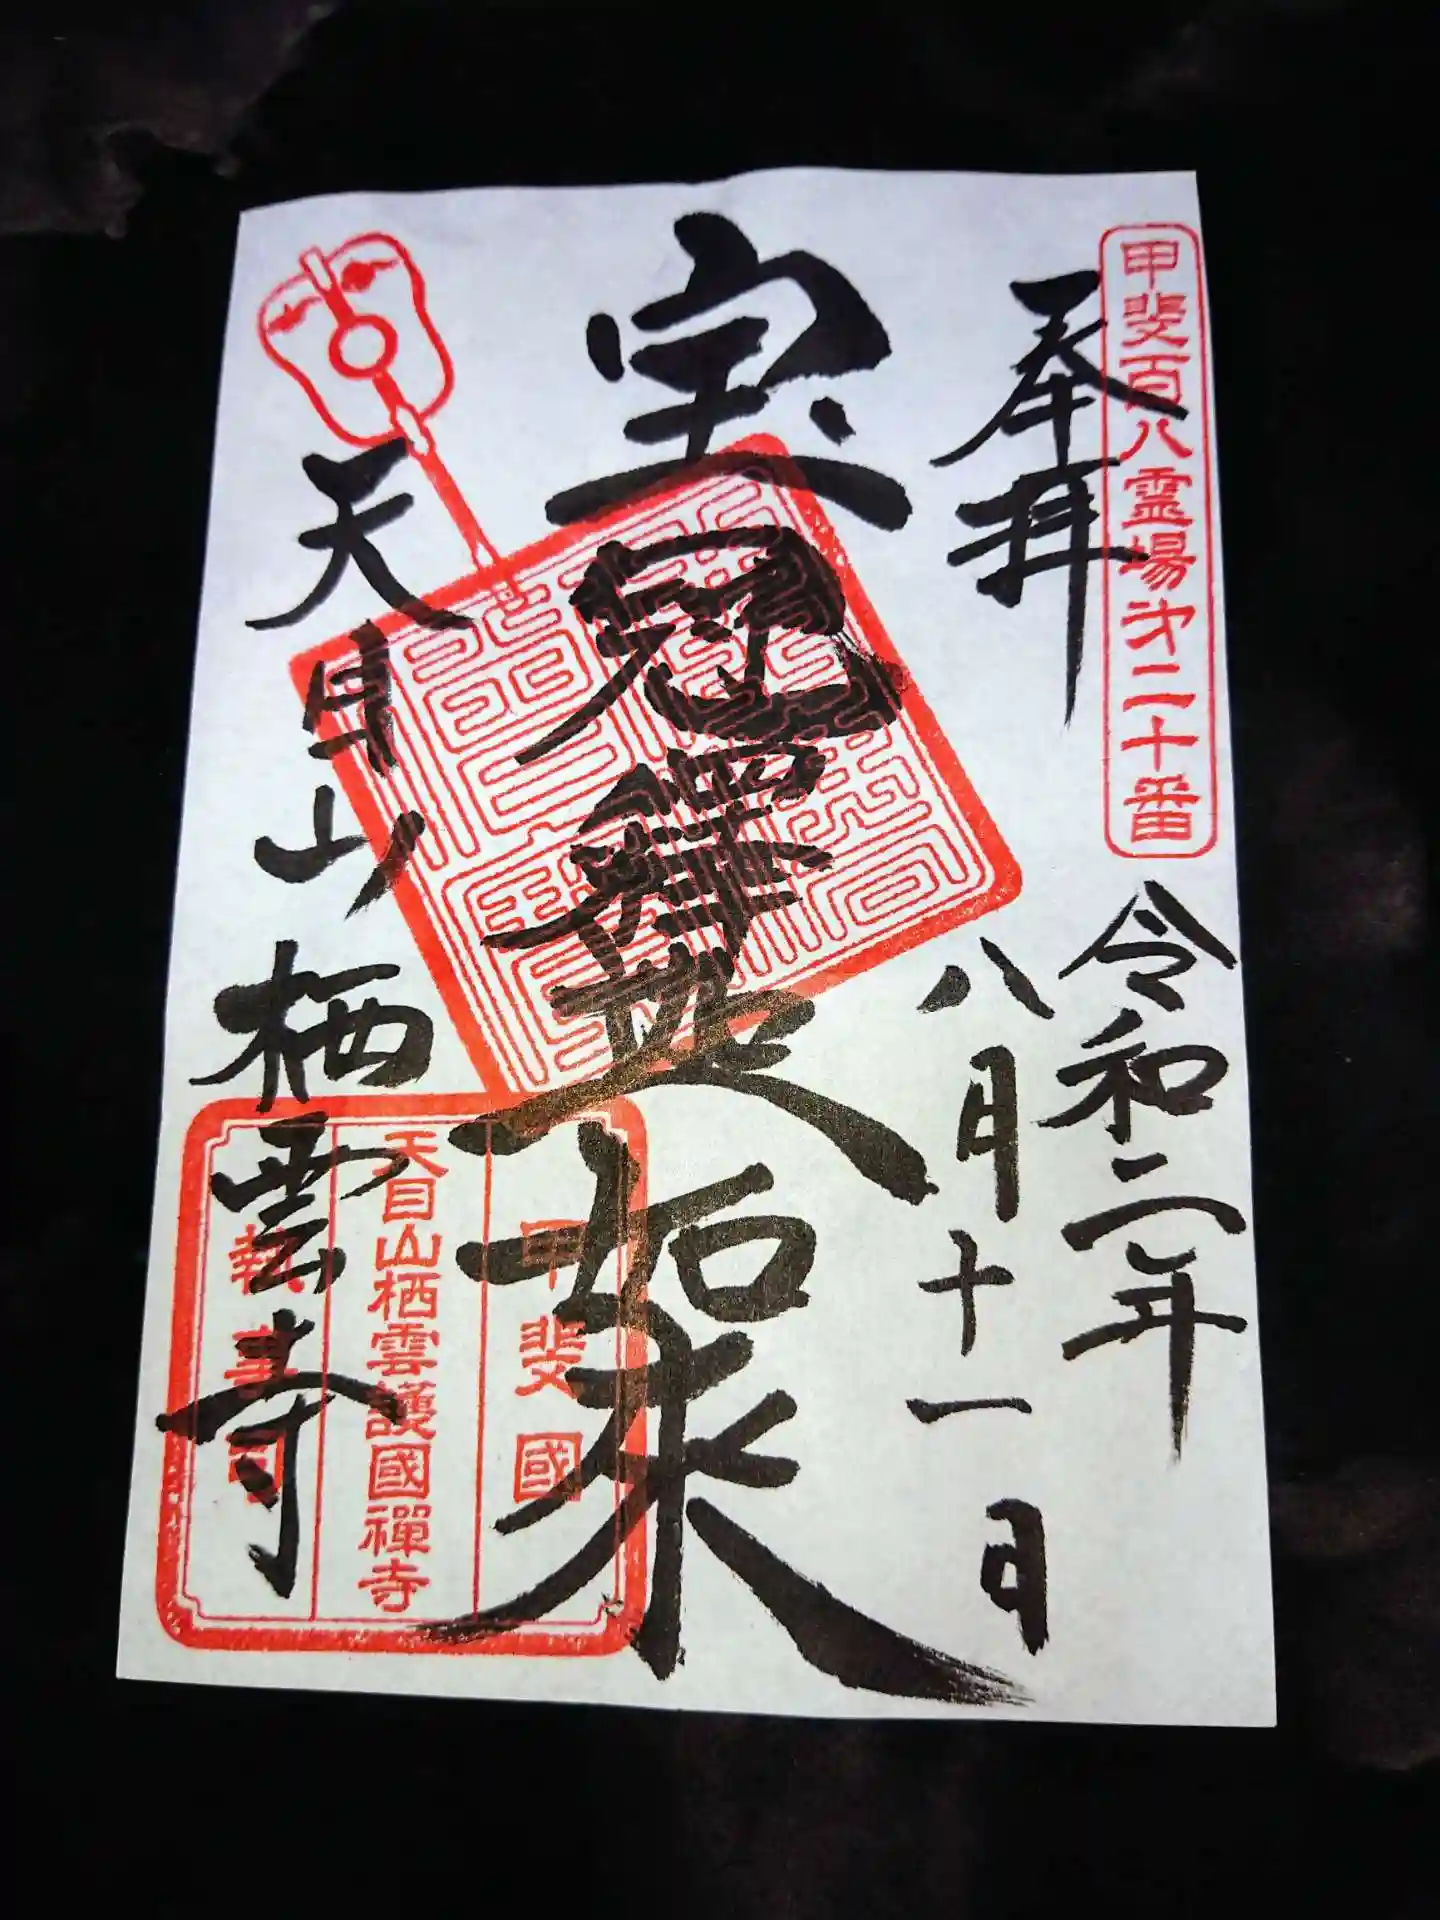 甲斐百八霊場第二十番
奉拝
令和二年
八月十一日
宝冠釋迦如来
天目山
栖雲寺
甲斐國
天目山栖雲護國禪寺
執事司